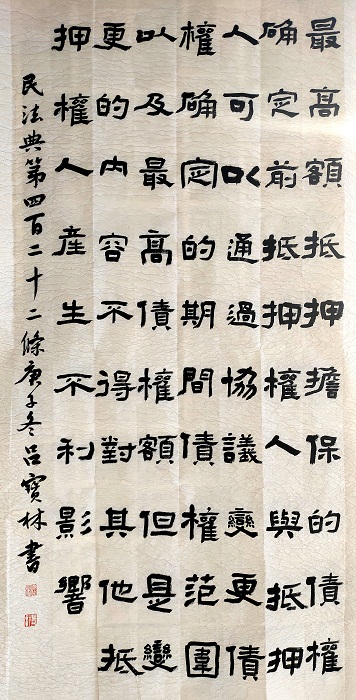 最高額抵押擔保的債權
确定前抵押權人與抵押
人可以通過協議變更債
權确定的期間債權范圍
以及最高債權額但是變
更的内容不得對其他抵
押權人産生不利影響
民法典第四百二十二條庚子冬呂寶林書